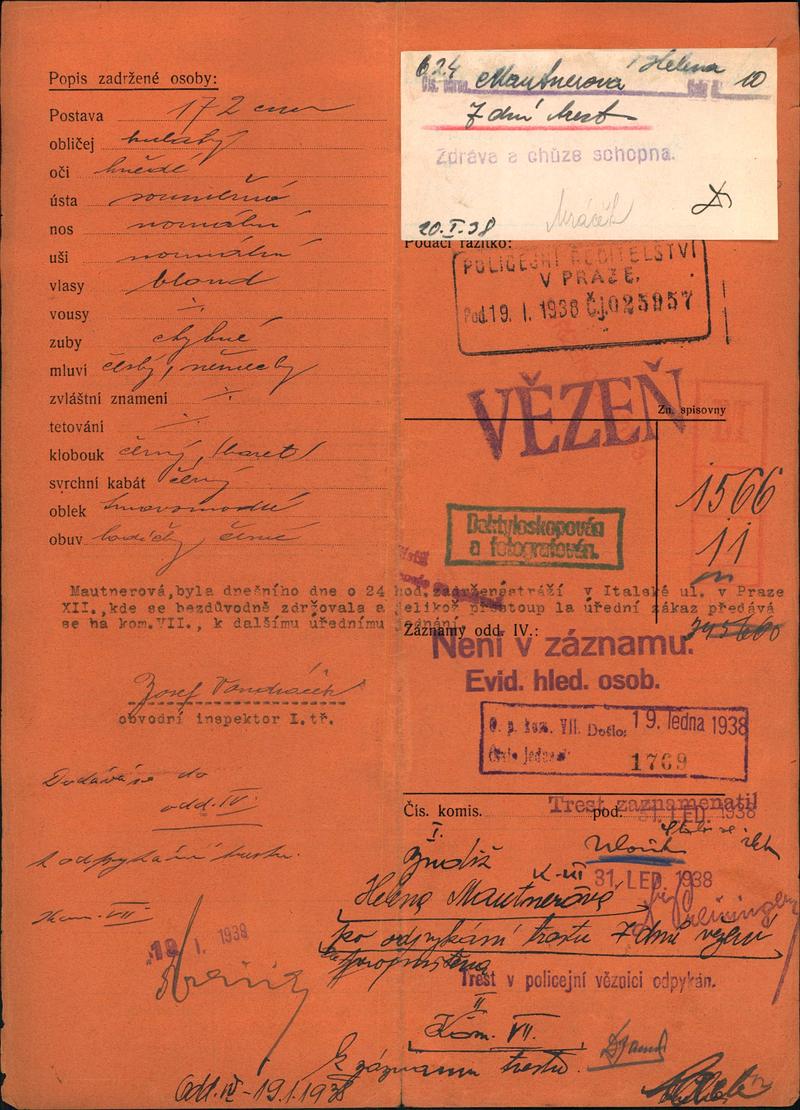 Popis zadržené osoby:
Postava 172 cm
obličej kulatý
oči hnědé
ústa souměrné
nos normální
uši normální
vlasy blond
vousy ·/·
zuby chybné
mluví česky, německy
zvláštní znamení ·/·
tetování ·/·
klobouk černý, (baret)
svrchní kabát černý
oblek tmavomodré
obuv černé
Mautnerová,byla dnešního dne o 24 hod. zadržena stráží v Italské ul. v Praze
XII.,kde se bezdůvodně zdržovala a jelikož přestoup la úřední zákaz předává
se na kom.VII., k dalšímu úřednímu jednání.
Josef
obvodní inspektor I.tř.
Dodává se do
odd. IV.
k odpykání trestu.
Kom. VII
19 I. 1938
Odd. IV - 19.1.1938
624 Mautnerová Helena 10
7 dní trest
Zdráva a chůze schopna.
20.I.38
Podací razítko:
POLICEJNÍ ŘEDITELSTVÍ
V PRAZE.
Pod. 19. I. 1938 Čj. 025957
VĚZEŇ
Zn. spisovny
1566
11
Daktyloskopován
a fotografován.
Záznamy odd. IV.:
745660
Není v záznamu.
Evid. hled. osob.
O. p. kom. VII. Došlo: 19. ledna 1938
Číslo jednací: 1769
Čís. komis. pod:
Trest zaznamenati!
31. LED. 1938
I.
K-III
31. LED. 1938
Helena Mautnerová
po odpykání trestu 7 dní vězení
propuštěna
Trest v policejní věznici odpykán.
II
Kom. VII.
K záznamu trestu.